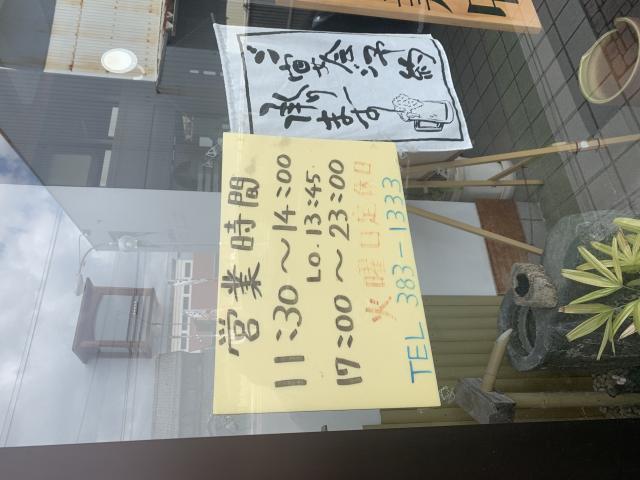 ご宴会予約
承ります
営業時間
11:30～14:00
LO.13:45.
17:00～23:00
火曜日定休日
TEL 383-1333